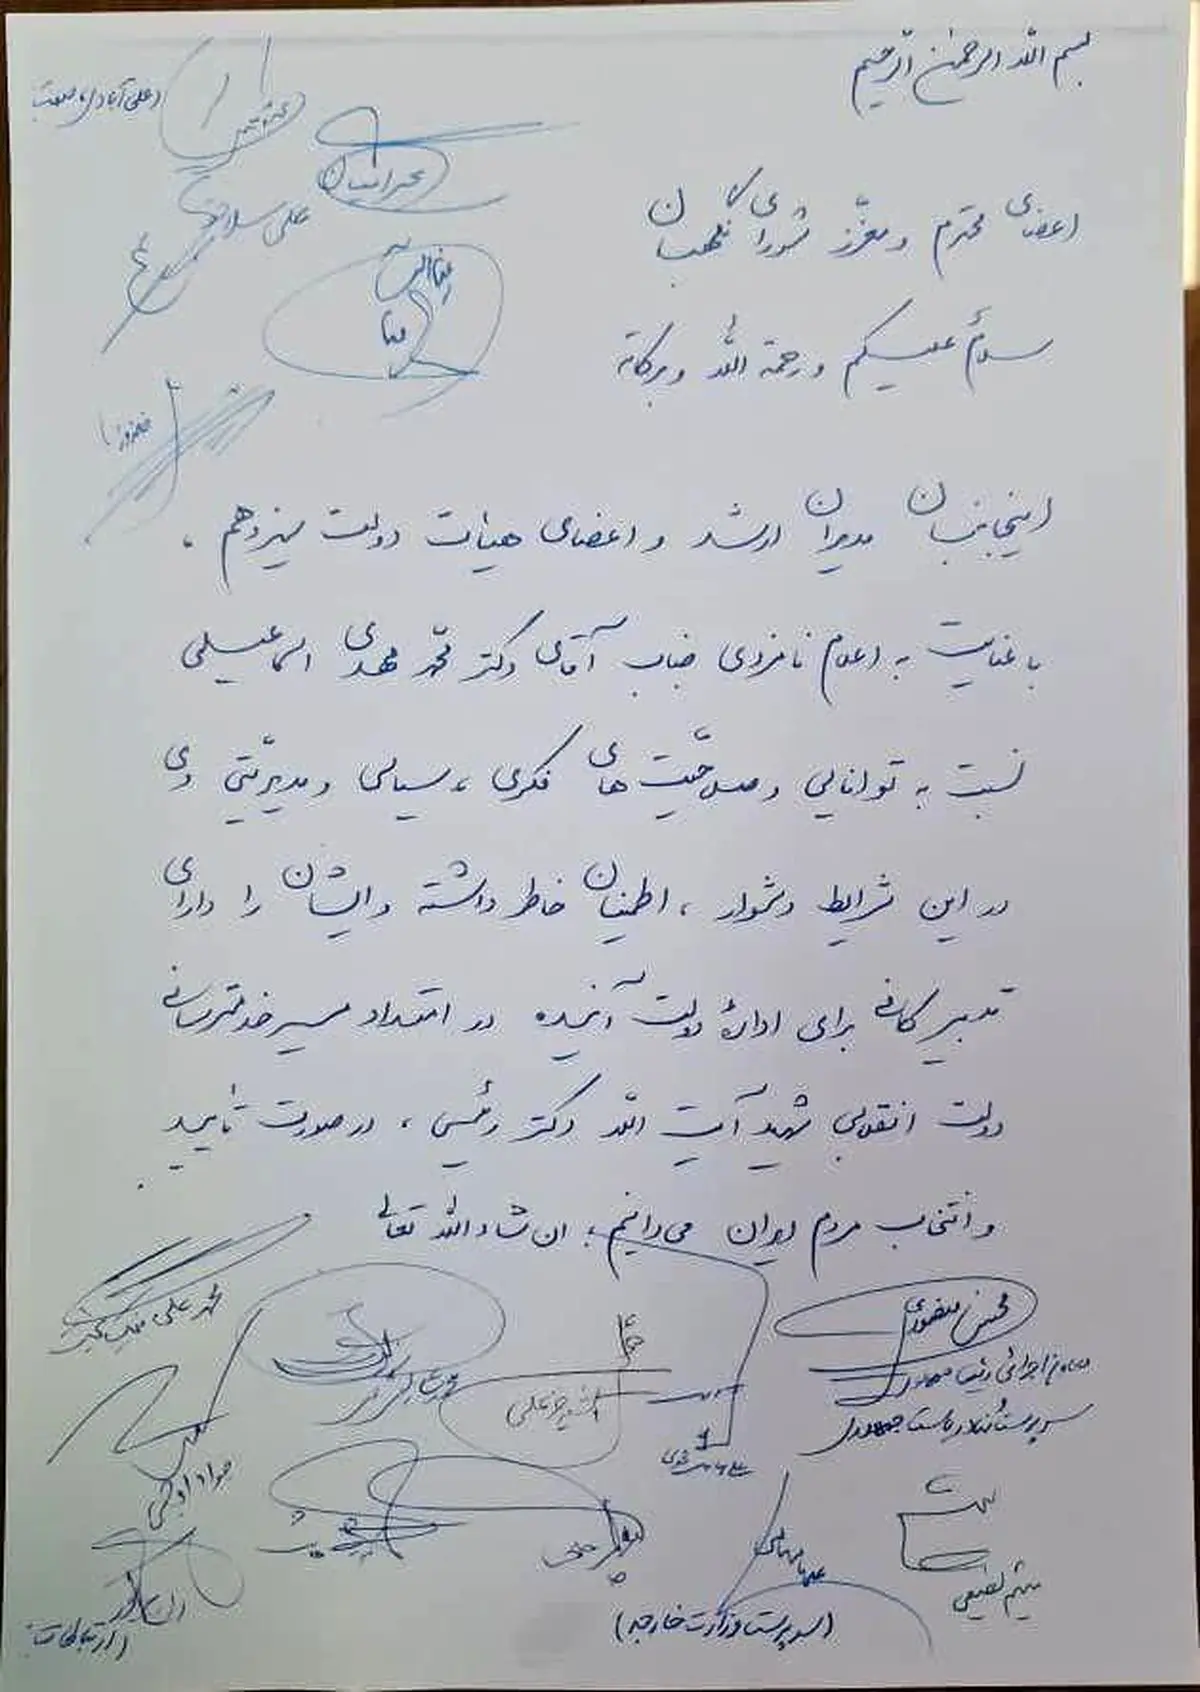 بسم الله الرحمن الرحیم
اعضای محترم و معزّز شورای نگهبان
سلامٌ علیکم و رحمة الله و برکاته
اینجانبان مدیران ارشد و اعضای هیأت دولت سیزدهم،
با عنایت به اعلام نامزدی جناب آقای دکتر محمّد مهدی اسماعیلی
نسبت به توانایی و صلاحیّت های فکری، سیاسی و مدیریّتی وی
در این شرایط دشوار، اطمینان خاطر داشته و ایشان را دارای
تدبیر کافی برای ادارهٔ دولت آینده در امتداد مسیر خدمتگزاری
دولت انقلابی شهید آیت الله دکتر رئیسی، در صورت تأیید
و انتخاب مردم ایران می‌دانیم؛ ان شاء الله تعالی
علی آبادی، صمت
محرابیان
علی سلاجقه
عین اله
محسن منصوری
معاون اجرائی رئیس جمهور
سرپرست نهاد ریاست جمهوری
محمد علی
جواد اوجی
میثم لطیفی
(سرپرست وزارت خارجه)
(ارتباطات)